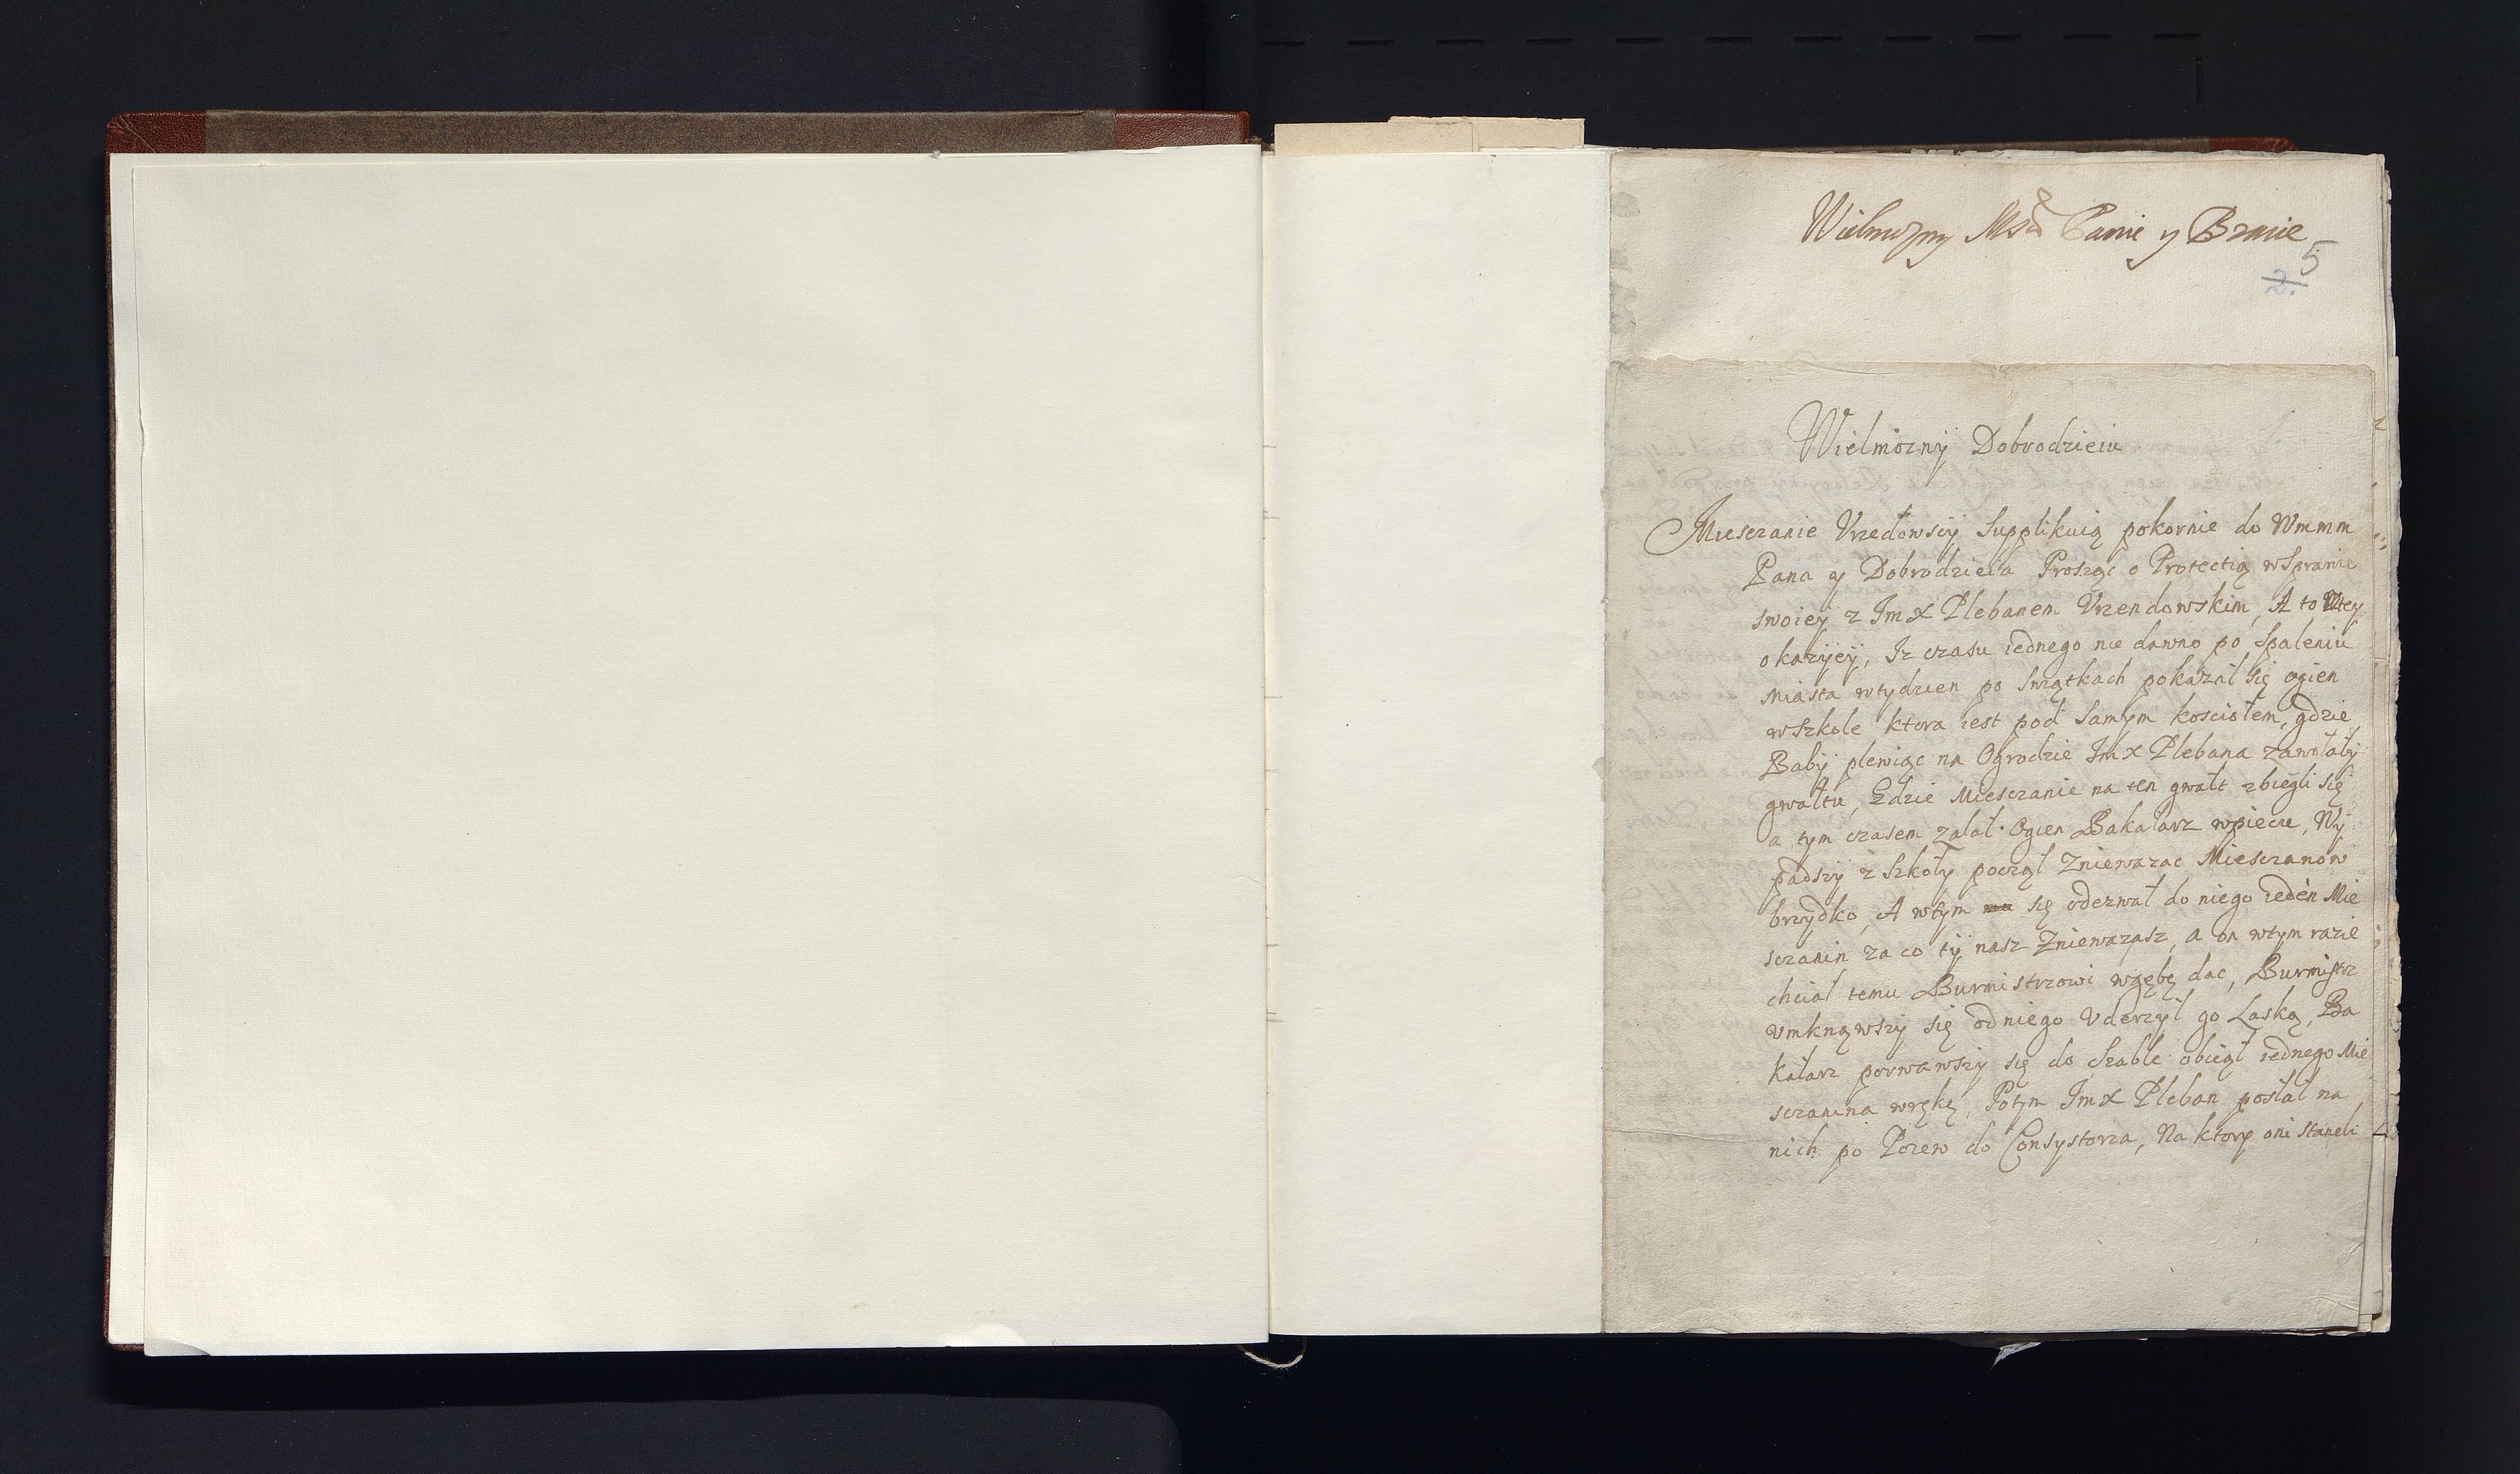 Wielmozny Msci Panie y Bracie
5
2.
Wielmozny Dobrodzieiu
Miesczanie Vrzedowscÿ Supplikuią pokornie do Wmmm
Pana y Dobrodzieia Prosząc o Protectią wSprawie
swoieÿ z Jmx Plebanem Vrzendowskim, A to Wtey
okazÿeÿ, Jz czasu iednego nie dawno po Spaleniu
Miasta wtydzien po Swiątkach pokazał się ogien
wSzkole ktora iest pod Samÿm kosciołem, gdzie
Babÿ plewiąc na Ogrodzie Jmx Plebana zawołałÿ
gwałtu, Gdzie Miesczanie na ten gwałt zbiegli się
a tym czasem zalał Ogien Bakałarz wpiecu, Wÿ
padszÿ z Szkołÿ począł Zniewazac Miesczanow
brzÿdko, A wtÿm się odezwał do niego ieden Mie
sczanin za co tÿ nasz Zniewazasz, a on wtÿm razie
chciał temu Burmistrzowi wgębę dac, Burmistrz
vmknąwszÿ się od niego Vderzÿł go Laską, Ba
kałarz porwawszÿ się do Szable obciął iednego Mie
sczanina wrękę, Potÿm Jmx Pleban posłał na
nich po Pozew do Consystorza, Na ktorÿ oni staneli